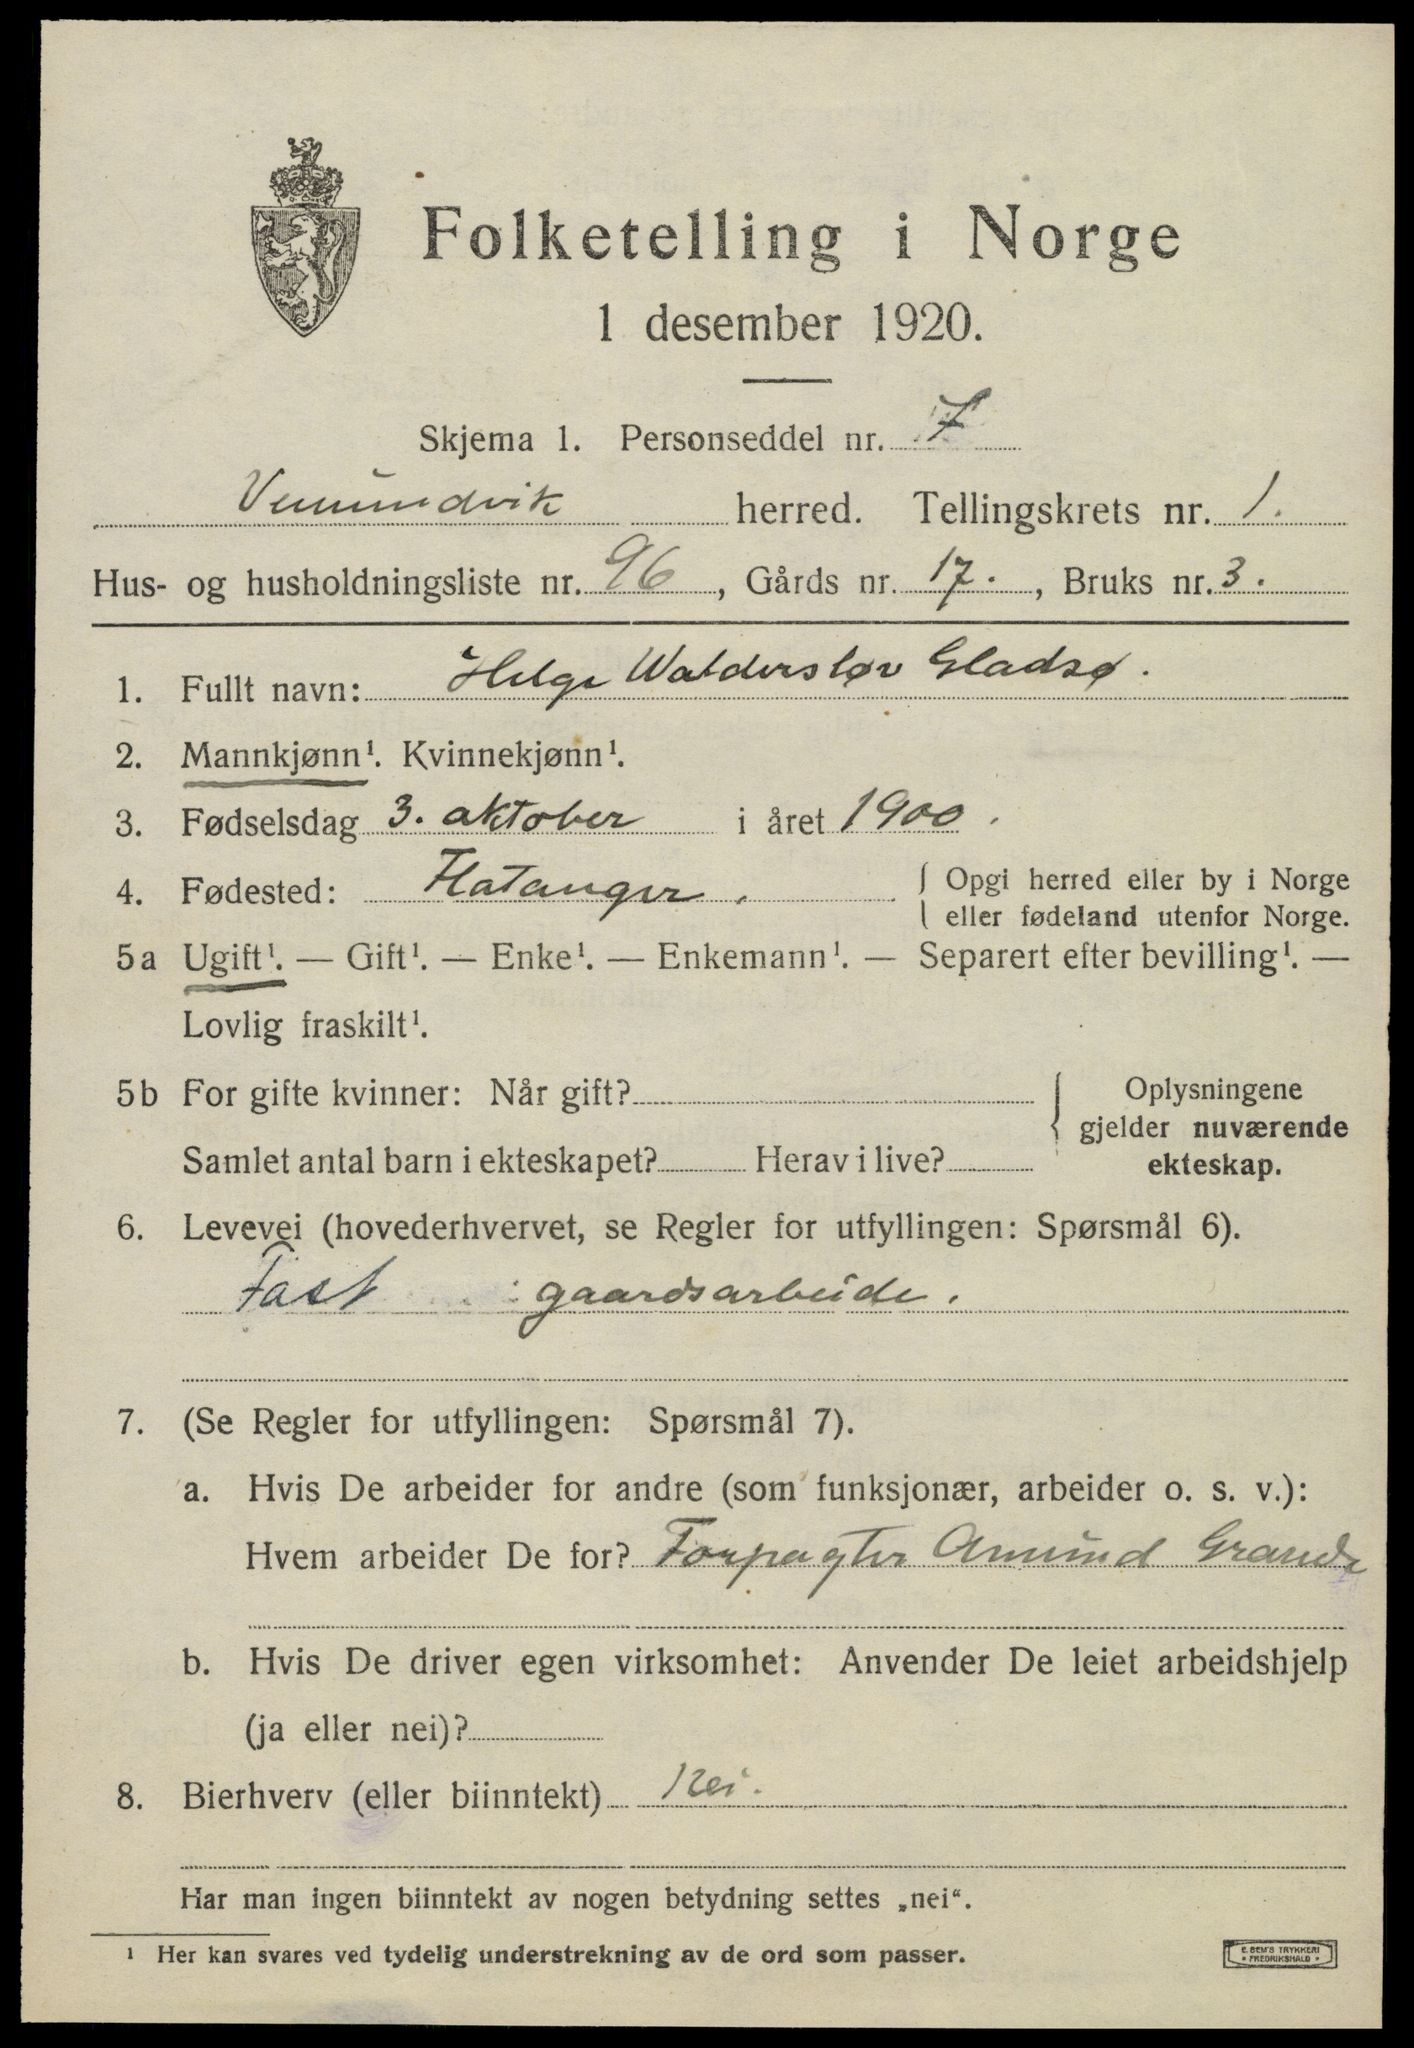 Folketelling i Norge
1 desember 1920.
Skjema 1. Personseddel nr. 7
Vemundvik herred. Tellingskrets nr. 1.
Hus- og husholdningsliste nr. 96, Gårds nr. 17., Bruks nr. 3.
1. Fullt navn: Helge Waldersløv Gladsø.
2. Mannkjønn¹. Kvinnekjønn¹.
3. Fødselsdag 3. oktober i året 1900.
4. Fødested: Flatanger. { Opgi herred eller by i Norge
eller fødeland utenfor Norge.
5a Ugift¹. — Gift¹. — Enke¹. — Enkemann¹. — Separert efter bevilling¹. —
Lovlig fraskilt¹.
5b For gifte kvinner: Når gift? { Oplysningene
gjelder nuværende
Samlet antal barn i ekteskapet? Herav i live? ekteskap.
6. Levevei (hovederhvervet, se Regler for utfyllingen: Spørsmål 6).
Fast gaardsarbeide.
7. (Se Regler for utfyllingen: Spørsmål 7).
a. Hvis De arbeider for andre (som funksjonær, arbeider o. s. v.):
Hvem arbeider De for? Forpagter Amund Grande
b. Hvis De driver egen virksomhet: Anvender De leiet arbeidshjelp
(ja eller nei)?
8. Bierhverv (eller biinntekt) Nei.
Har man ingen biinntekt av nogen betydning settes „nei“.
¹ Her kan svares ved tydelig understrekning av de ord som passer.
E. SEM'S TRYKKERI
* FREDRIKSHALD *